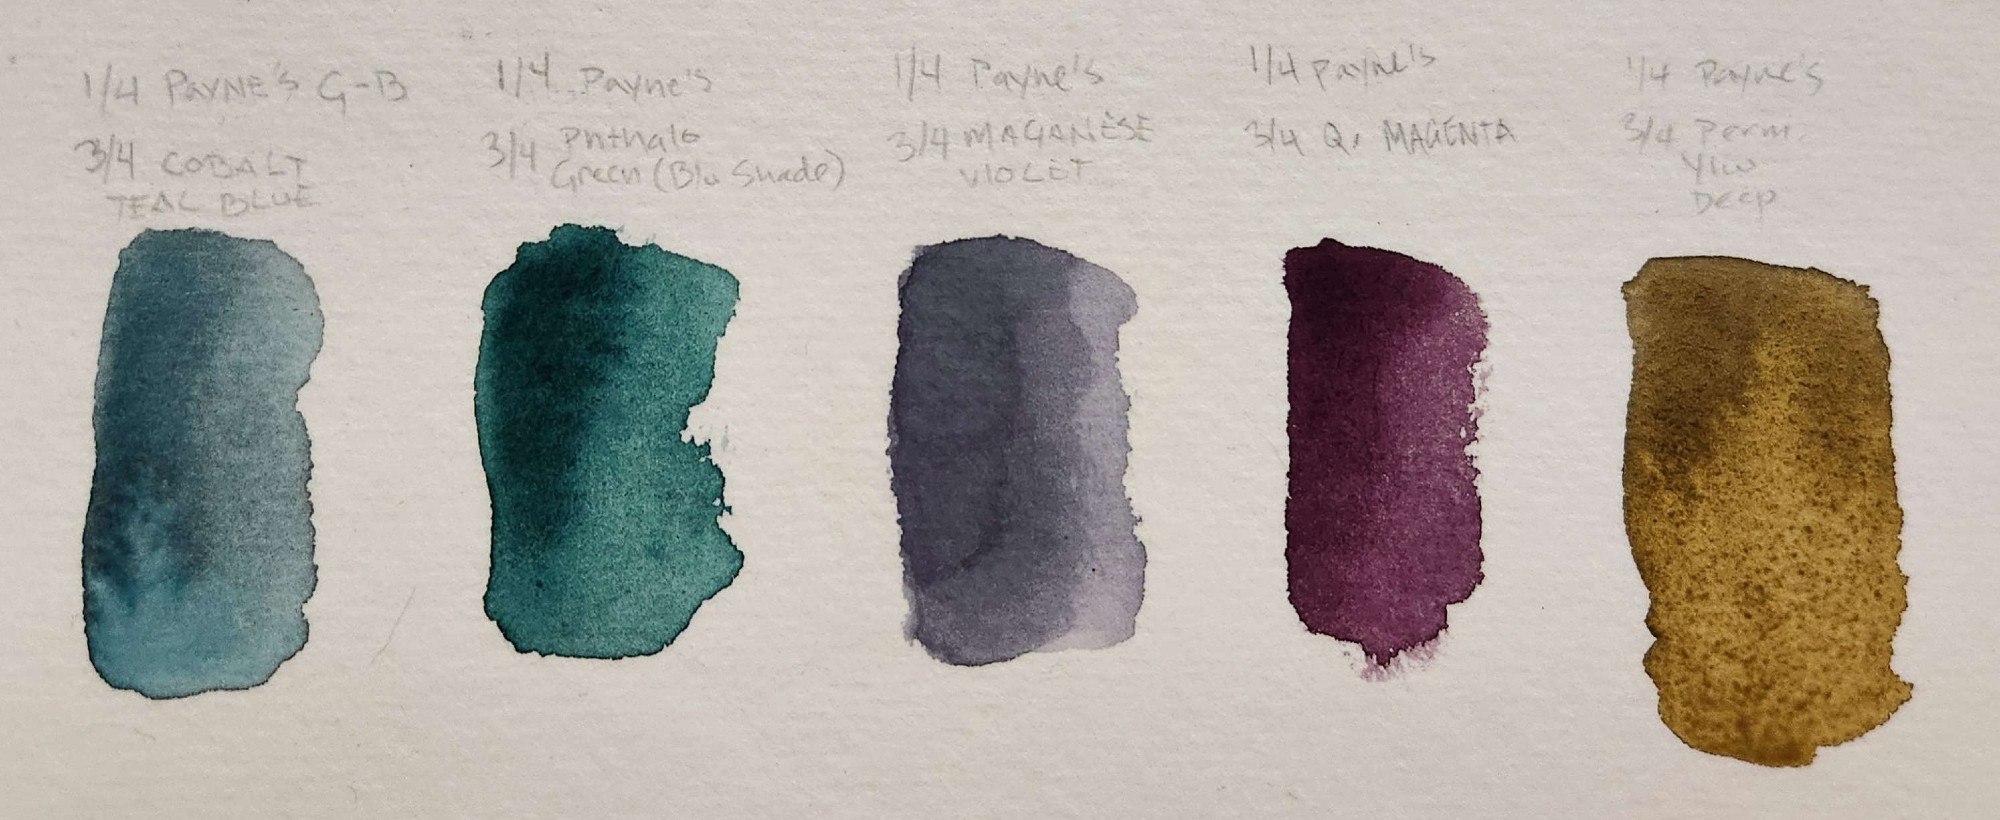 1/4 PAYNE'S G-B
3/4 COBALT
TEAL BLUE
1/4 Payne's
3/4 Phthalo
Green (Blu Shade)
1/4 Payne's
3/4 MAGANESE
VIOLET
1/4 Payne's
3/4 Q. MAGENTA
1/4 Payne's
3/4 Perm.
Ylw
Deep